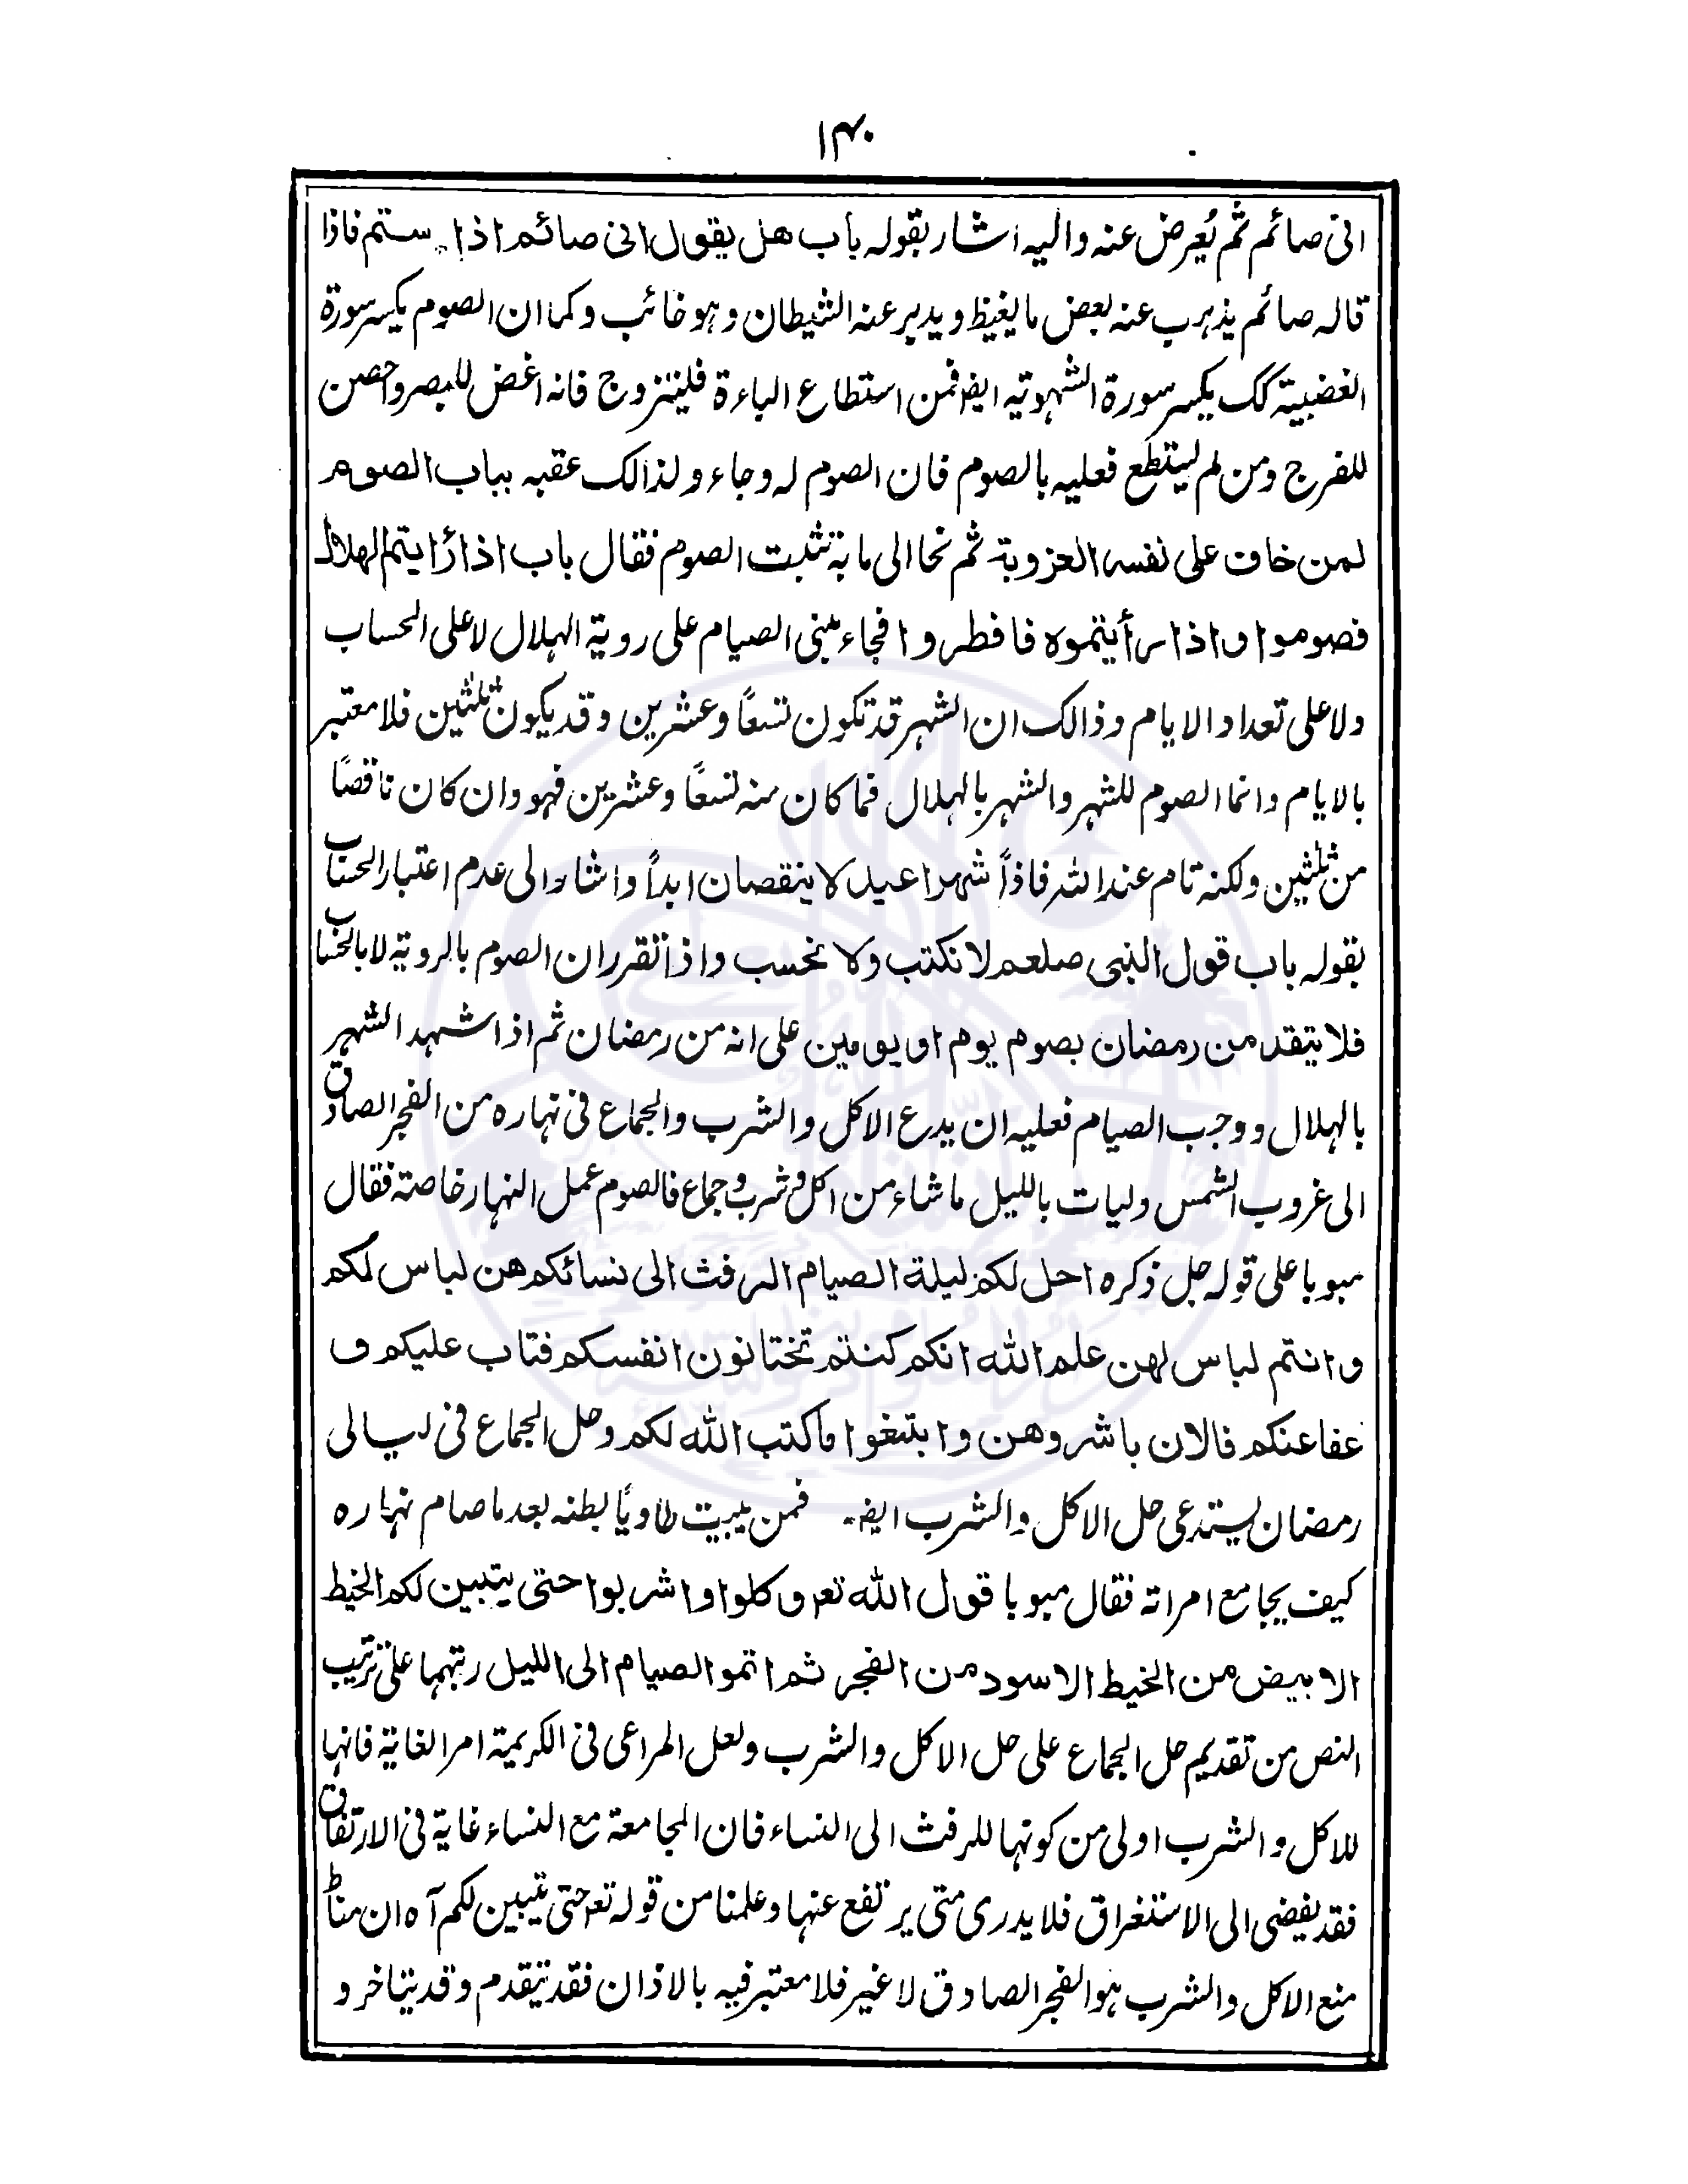 ۱۴۰
انی صائم ثم یُعرض عنه والیه اشار بقوله باب هل یقول انی صائم اذا ستتم فاذا
قاله صائم یذهب عنه بعض ما یغیظ ویدبر عنه الشیطان وهو خائب وکما ان الصوم یکسر سورة
الغضبیة کک یکسر سورة الشهوتیه ایضا فمن استطاع الباءة فلیتزوج فانه اغض للبصر واحصن
للفرج ومن لم یستطع فعلیه بالصوم فان الصوم له وجاء ولذالک عقبه بباب الصوم
لمن خاف علی نفسه العزوبة ثم نحا الی ما به تثبت الصوم فقال باب اذا رأیتم الهلال
فصوموا واذا رأیتموه فافطروا فجاء مبنی الصیام علی رویة الهلال لا علی الحساب
ولا علی تعداد الایام وذالک ان الشهر قد تکون تسعًا وعشرین وقد یکون ثلثین فلا معتبر
بالایام وانما الصوم للشهر والشهر بالهلال فما کان منه تسعًا وعشرین فهو وان کان ناقصًا
من ثلثین ولکنه تام عند الله فاذاً شهرا عید لا ینقصان ابداً واشار الی عدم اعتبار الحساب
بقوله باب قول النبی صلعم لا نکتب ولا نحسب واذا تقرر ان الصوم بالرویة لا بالحساب
فلا یتقد من رمضان بصوم یوم او یومین علی انه من رمضان ثم اذا شهد الشهر
بالهلال ووجب الصیام فعلیه ان یدع الاکل والشرب والجماع فی نهاره من الفجر الصادق
الی غروب الشمس ولیات باللیل ماشاء من اکل وشرب وجماع فالصوم عمل النهار خاصة فقال
مبوبا علی قوله جل ذکره احل لکم لیلة الصیام الرفث الی نسائکم هن لباس لکم
وانتم لباس لهن علم الله انکم کنتم تختانون انفسکم فتاب علیکم و
عفا عنکم فالان باشروهن وابتغوا ما کتب الله لکم وحل الجماع فی لیالی
رمضان یستدعی حل الاکل والشرب ایضا فمن یبیت طاویًا بطنه بعد ما صام نهاره
کیف یجامع امراته فقال مبوبا قول الله تعہ وکلوا واشربوا حتی یتبین لکم الخیط
الابیض من الخیط الاسود من الفجر ثم اتموا الصیام الی اللیل رتبهما علی ترتیب
النص من تقدیم حل الجماع علی حل الاکل والشرب ولعل المراعی فی الکریمة امر الغایة فانها
للاکل والشرب اولی من کونها للرفث الی النساء فان المجامعة مع النساء غایة فی الارتفاق
فقد یفضی الی الاستغراق فلا یدری متی یرتفع عنها وعلمنا من قوله تعہ حتی یتبین لکم آه ان مناط
منع الاکل والشرب هو الفجر الصادق لا غیر فلا معتبر فیه بالاذان فقد یتقدم وقد یتاخر و